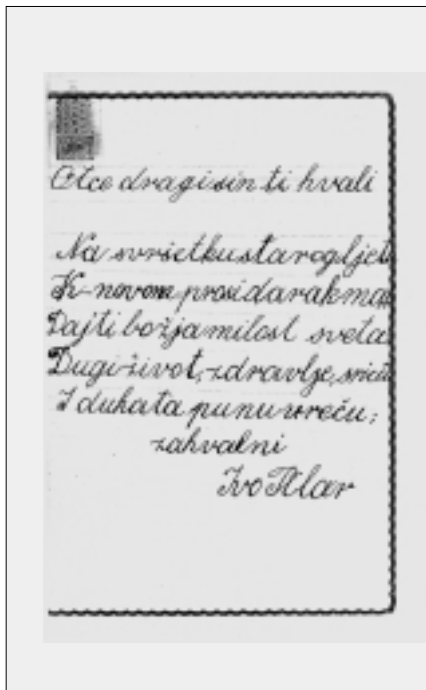 Otce dragi sin ti hvali
Na svršetku starog ljeta
K novom prosi darak ma
Dajti božja milost sveta
Dugi život, zdravlje, sriću
I duhata punu vreću;
zahvalni
Ivo Pilar